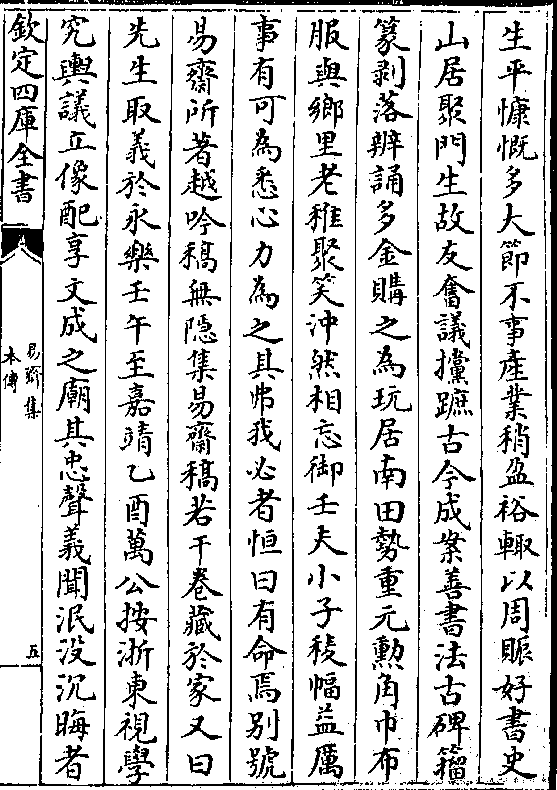 生平慷慨多大節不事產業稍盈裕輙以周賑好書史
山居聚門生故友奮議攩蹠古今成案善書法古碑籀
篆剥落辨誦多金購之為玩居南田勢重元勲角巾布
服與鄉里老稚聚笑沖然相忘御壬夫小子稜幅益厲
事有可為悉心力為之其弗我必者恒曰有命焉别號
易齋所著越吟稿無隠集易齋稿若干卷藏於家又曰
先生取義於永樂壬午至嘉靖乙酉萬公按浙東視學
究輿議立像配享文成之廟其忠聲義聞泯没沉晦者
欽定四庫全書
易齋集
本傳
五